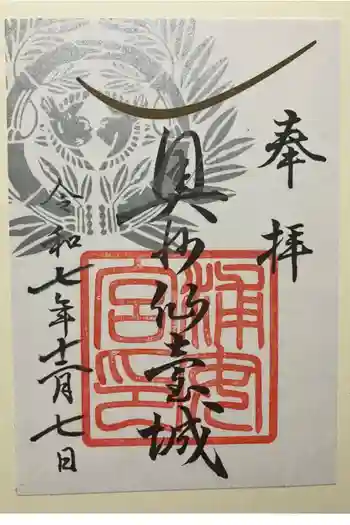 奉拝
奥州仙臺城
令和七年十二月七日